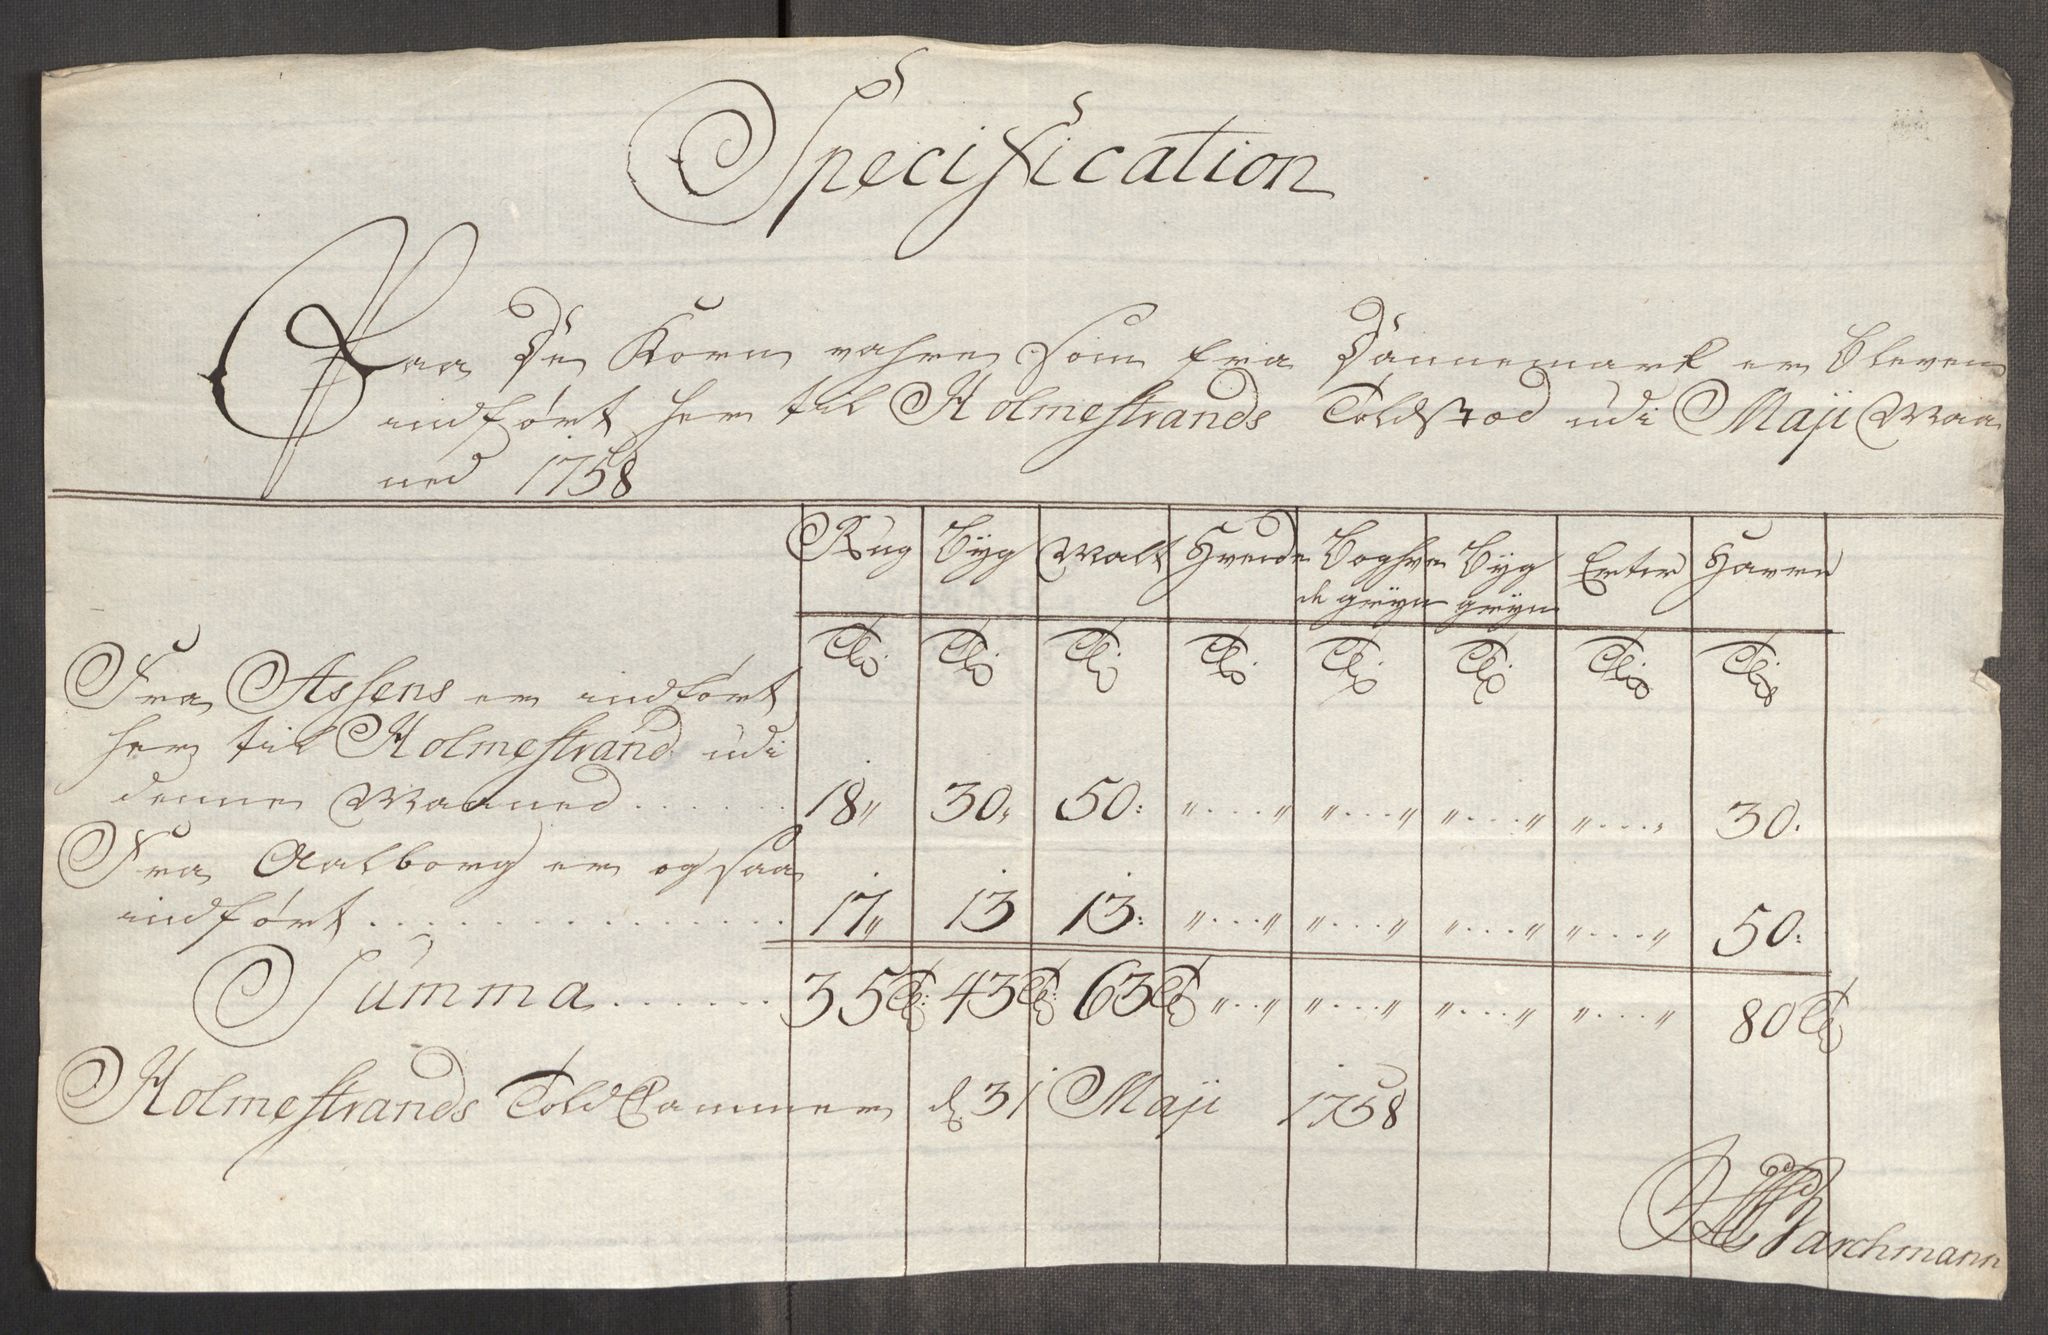 Specification
Paa De Korn vahre som fra Dannemark er bleven
indført her til Holmestrands Toldstæd udi Maji Maa
ned 1758
Rug Byg Malt Hvede Boghve Byg Erter Havre
de gryn gryn
Tdr Tdr Tdr Tdr Tdr Tdr Tdr Tdr
Fra Assens er indført
her til Holmestrand udi
denne Maaned . . . . . . 18 „ 30 „ 50: „ . . . „ „ . . . „ „ . . . „ „ . . . „ 30.
Fra Aalborg er og saa
indført . . . . . . . . . . . . . 17 „ 13 13: „ . . . „ „ . . . „ „ . . . „ „ . . . „ 50:
Summa . . . . . . . 35 Tdr 43 Tdr 63 Tdr „ . . „ „ . . . „ „ . . . „ „ . . . „ 80 Tdr
Holmestrands Told Cammer d. 31 Maji 1758
Parchmann